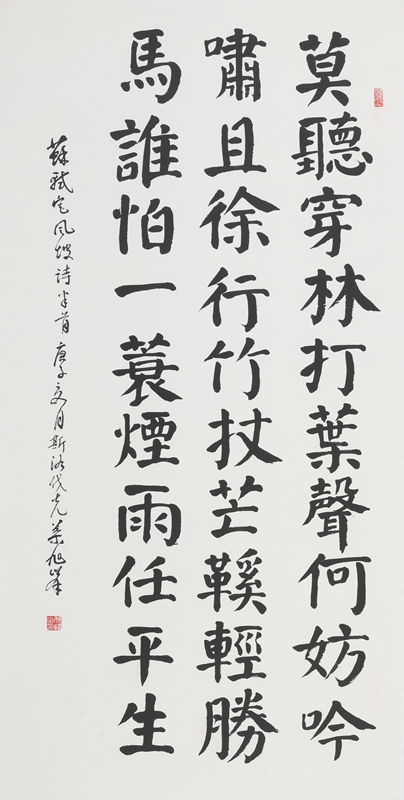 莫聽穿林打葉聲何妨吟
嘯且徐行竹杖芒鞵輕勝
馬誰怕一蓑煙雨任平生
蘇軾定風坡詩半首 庚子夏月斯洛伐克旭峯